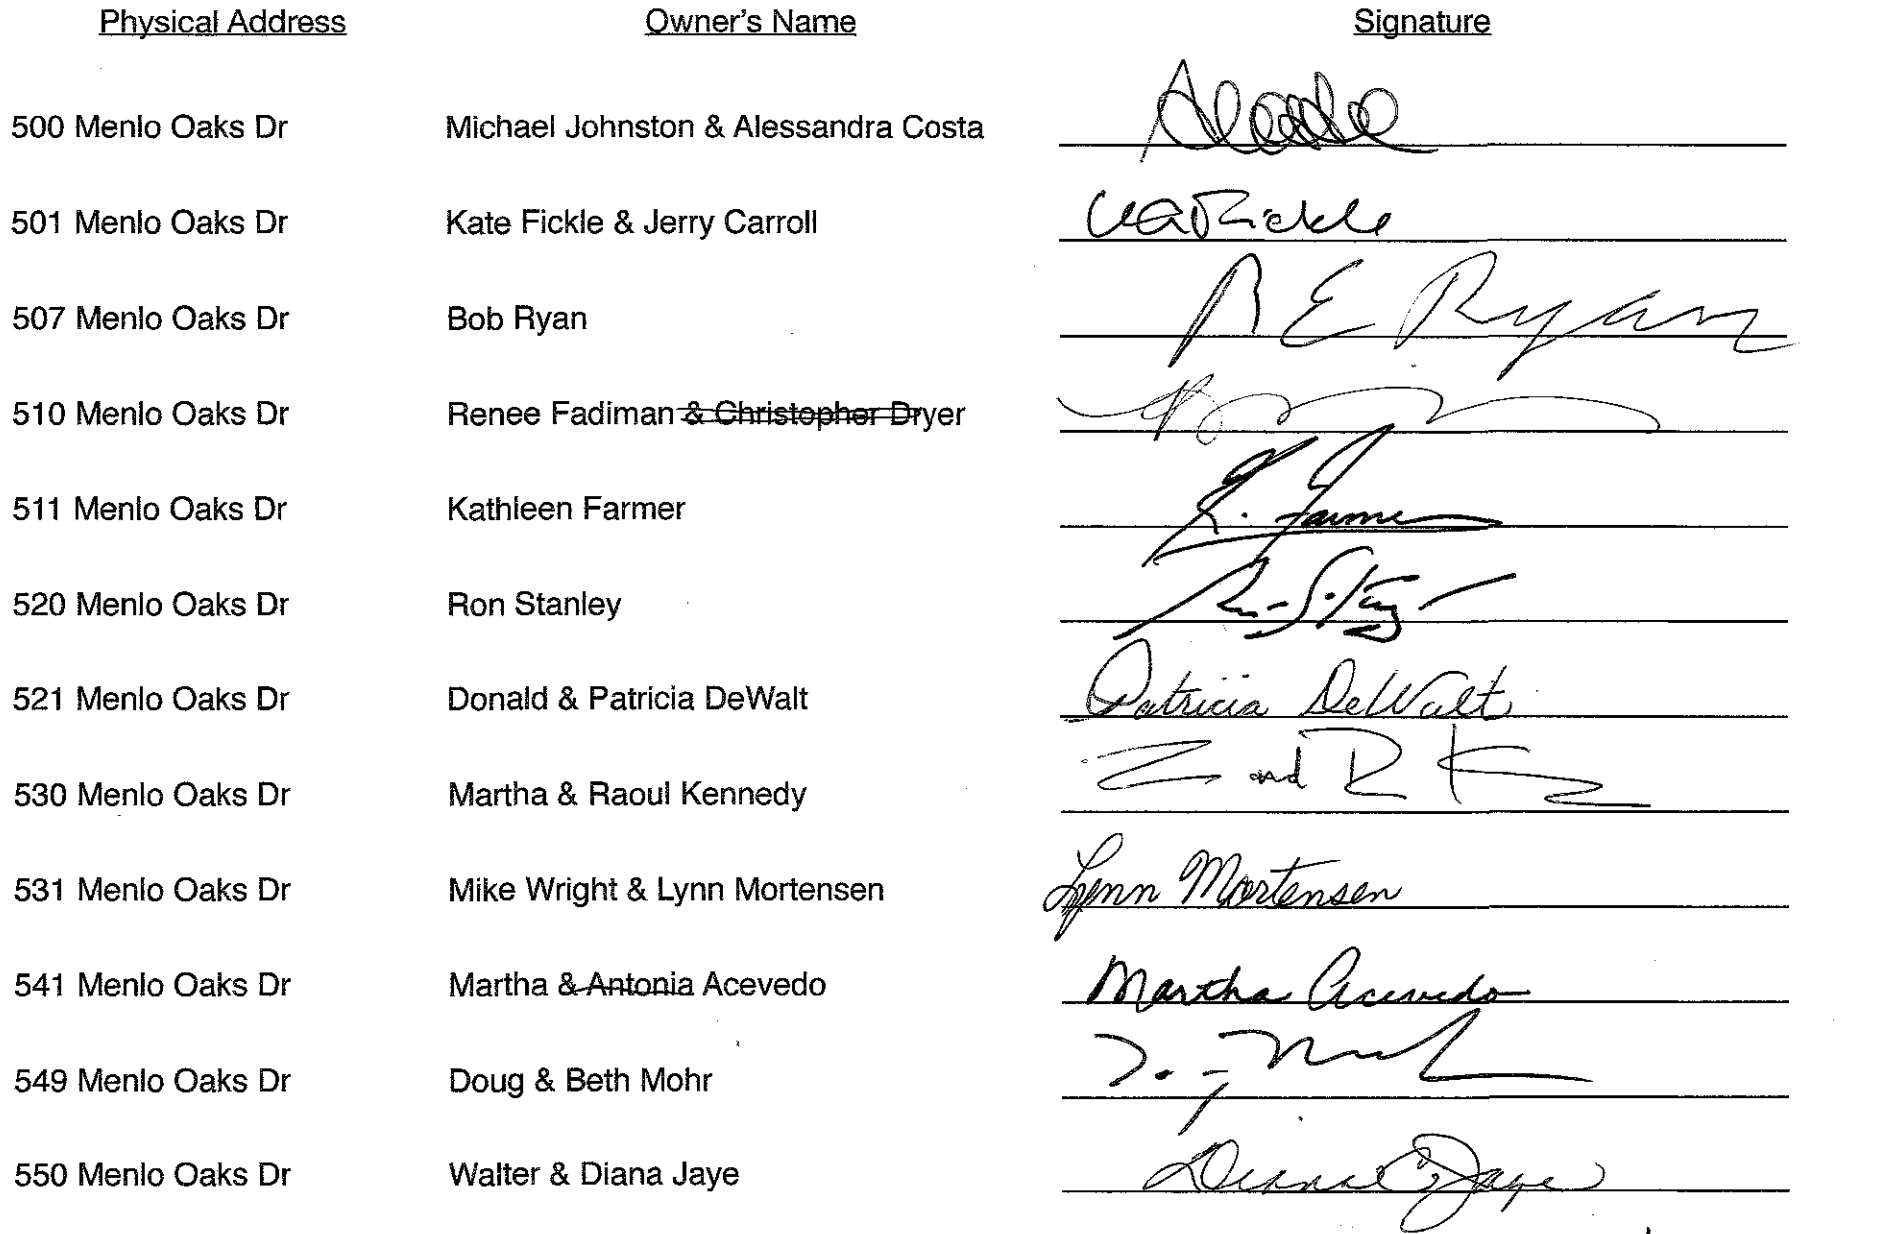 Physical Address Owner's Name Signature
500 Menlo Oaks Dr Michael Johnston & Alessandra Costa
501 Menlo Oaks Dr Kate Fickle & Jerry Carroll Fickle
507 Menlo Oaks Dr Bob Ryan R E Ryan
510 Menlo Oaks Dr Renee Fadiman & Christopher Dryer
511 Menlo Oaks Dr Kathleen Farmer K. Farmer
520 Menlo Oaks Dr Ron Stanley
521 Menlo Oaks Dr Donald & Patricia DeWalt Patricia DeWalt
530 Menlo Oaks Dr Martha & Raoul Kennedy and R K
531 Menlo Oaks Dr Mike Wright & Lynn Mortensen Lynn Mortensen
541 Menlo Oaks Dr Martha & Antonia Acevedo Martha Acevedo
549 Menlo Oaks Dr Doug & Beth Mohr
550 Menlo Oaks Dr Walter & Diana Jaye Diana C Jaye